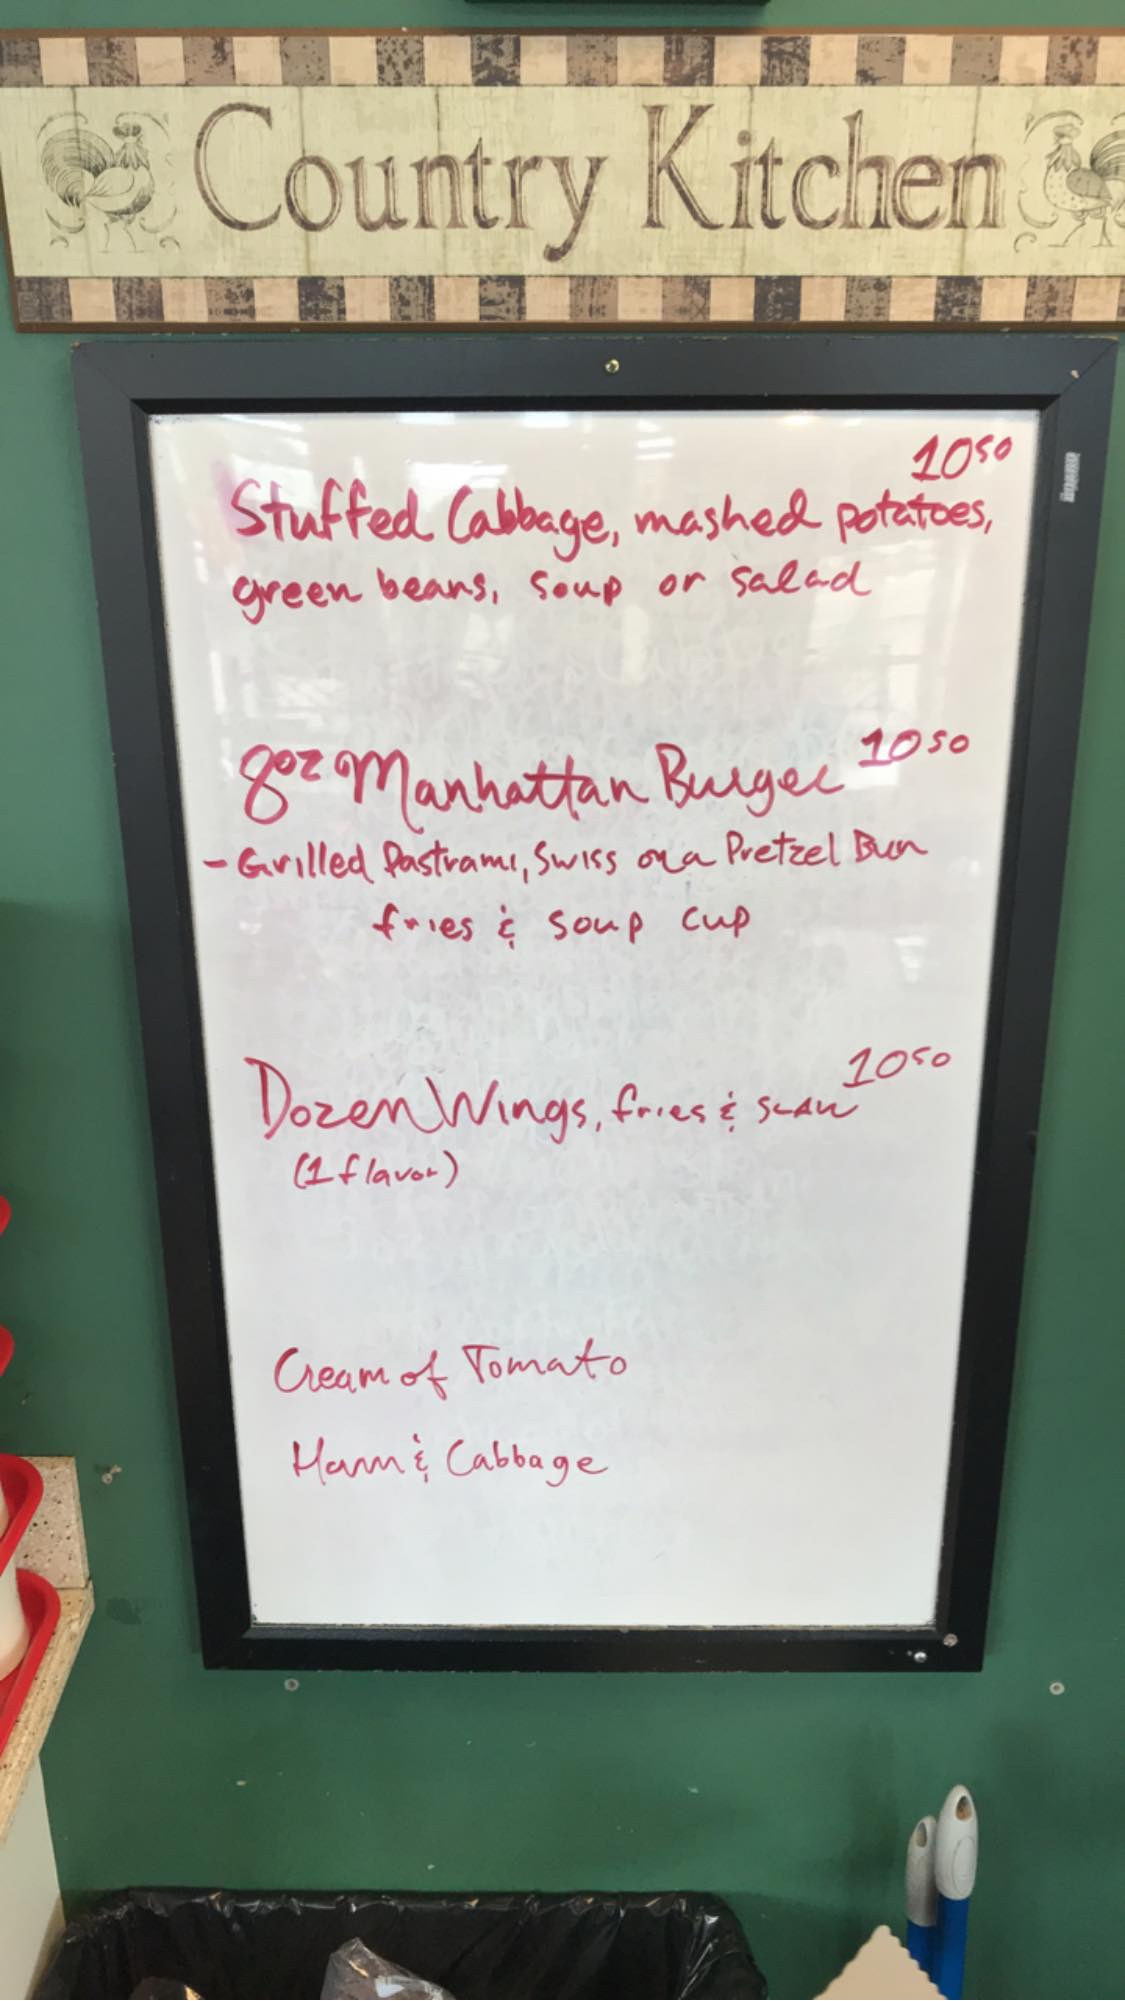 Country Kitchen
10⁵⁰
Stuffed Cabbage, mashed potatoes,
green beans, soup or salad
8oz Manhattan Burger 10⁵⁰
- Grilled Pastrami, Swiss on a Pretzel Bun
fries & soup cup
10⁵⁰
Dozen Wings, fries & SLAW
(1 flavor)
Cream of Tomato
Ham & Cabbage